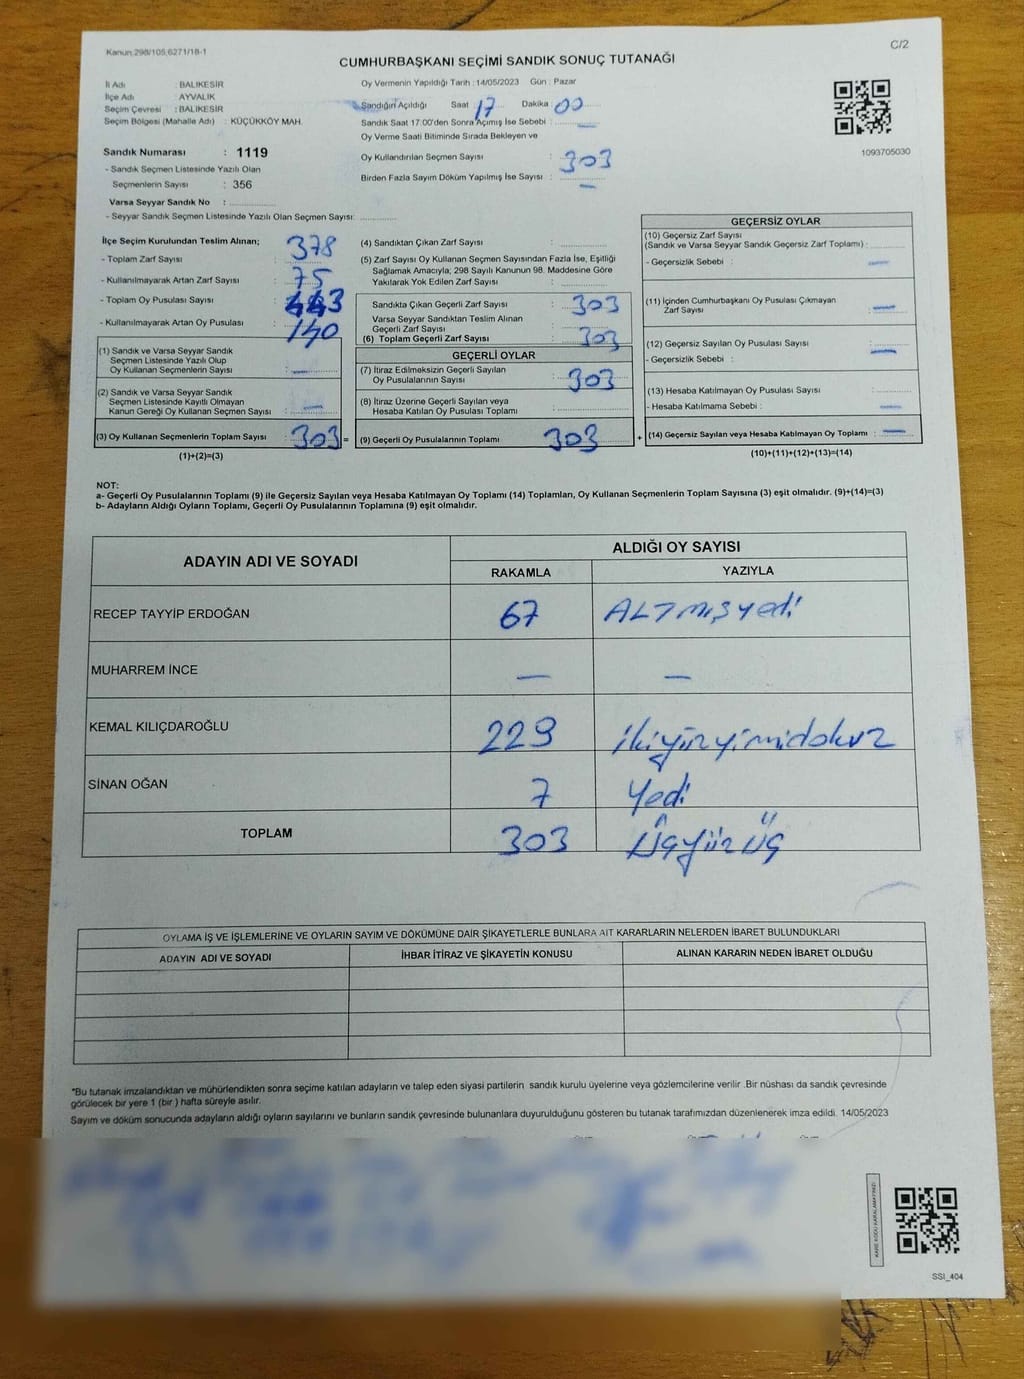 Kanun 298/105,6271/18-1
C/2
CUMHURBAŞKANI SEÇİMİ SANDIK SONUÇ TUTANAĞI
İl Adı : BALIKESİR
İlçe Adı : AYVALIK
Seçim Çevresi : BALIKESİR
Seçim Bölgesi (Mahalle Adı) : KÜÇÜKKÖY MAH.
Sandık Numarası : 1119
- Sandık Seçmen Listesinde Yazılı Olan
Seçmenlerin Sayısı : 356
Varsa Seyyar Sandık No : ..............
- Seyyar Sandık Seçmen Listesinde Yazılı Olan Seçmen Sayısı: ..............
Oy Vermenin Yapıldığı Tarih : 14/05/2023 Gün : Pazar
Sandığın Açıldığı Saat 17 Dakika 00
Sandık Saat 17:00'den Sonra Açımış İse Sebebi : —
Oy Verme Saati Bitiminde Sırada Bekleyen ve
Oy Kullandırılan Seçmen Sayısı : 303
Birden Fazla Sayım Döküm Yapılmış İse Sayısı : —
1093705030
İlçe Seçim Kurulundan Teslim Alınan;
- Toplam Zarf Sayısı : 378
- Kullanılmayarak Artan Zarf Sayısı : 75
- Toplam Oy Pusulası Sayısı : 443
- Kullanılmayarak Artan Oy Pusulası : 140
(1) Sandık ve Varsa Seyyar Sandık
Seçmen Listesinde Yazılı Olup
Oy Kullanan Seçmenlerin Sayısı : —
(2) Sandık ve Varsa Seyyar Sandık
Seçmen Listesinde Kayıtlı Olmayan
Kanun Gereği Oy Kullanan Seçmen Sayısı : —
(3) Oy Kullanan Seçmenlerin Toplam Sayısı : 303 =
(1)+(2)=(3)
(4) Sandıktan Çıkan Zarf Sayısı : ..............
(5) Zarf Sayısı Oy Kullanan Seçmen Sayısından Fazla İse, Eşitliği
Sağlamak Amacıyla; 298 Sayılı Kanunun 98. Maddesine Göre
Yakılarak Yok Edilen Zarf Sayısı : ..............
Sandıkta Çıkan Geçerli Zarf Sayısı : 303
Varsa Seyyar Sandıktan Teslim Alınan
Geçerli Zarf Sayısı : ..............
(6) Toplam Geçerli Zarf Sayısı : 303
GEÇERLİ OYLAR
(7) İtiraz Edilmeksizin Geçerli Sayılan
Oy Pusulalarının Sayısı : 303
(8) İtiraz Üzerine Geçerli Sayılan veya
Hesaba Katılan Oy Pusulası Toplamı : ..............
(9) Geçerli Oy Pusulalarının Toplamı 303 +
GEÇERSİZ OYLAR
(10) Geçersiz Zarf Sayısı
(Sandık ve Varsa Seyyar Sandık Geçersiz Zarf Toplamı) : ..............
- Geçersizlik Sebebi : —
(11) İçinden Cumhurbaşkanı Oy Pusulası Çıkmayan
Zarf Sayısı : —
(12) Geçersiz Sayılan Oy Pusulası Sayısı : —
- Geçersizlik Sebebi :
(13) Hesaba Katılmayan Oy Pusulası Sayısı : ..............
- Hesaba Katılmama Sebebi : —
(14) Geçersiz Sayılan veya Hesaba Katılmayan Oy Toplamı : —
(10)+(11)+(12)+(13)=(14)
NOT:
a- Geçerli Oy Pusulalarının Toplamı (9) ile Geçersiz Sayılan veya Hesaba Katılmayan Oy Toplamı (14) Toplamları, Oy Kullanan Seçmenlerin Toplam Sayısına (3) eşit olmalıdır. (9)+(14)=(3)
b- Adayların Aldığı Oyların Toplamı, Geçerli Oy Pusulalarının Toplamına (9) eşit olmalıdır.
ADAYIN ADI VE SOYADI
ALDIĞI OY SAYISI
RAKAMLA YAZIYLA
RECEP TAYYİP ERDOĞAN 67 ALTmışyedi
MUHARREM İNCE — —
KEMAL KILIÇDAROĞLU 229 ikiyüzyimidokuz
SİNAN OĞAN 7 Yedi
TOPLAM 303 ÜçyüzÜç
OYLAMA İŞ VE İŞLEMLERİNE VE OYLARIN SAYIM VE DÖKÜMÜNE DAİR ŞİKAYETLERLE BUNLARA AİT KARARLARIN NELERDEN İBARET BULUNDUKLARI
ADAYIN ADI VE SOYADI İHBAR İTİRAZ VE ŞİKAYETİN KONUSU ALINAN KARARIN NEDEN İBARET OLDUĞU
*Bu tutanak imzalandıktan ve mühürlendikten sonra seçime katılan adayların ve talep eden siyasi partilerin sandık kurulu üyelerine veya gözlemcilerine verilir .Bir nüshası da sandık çevresinde
görülecek bir yere 1 (bir ) hafta süreyle asılır.
Sayım ve döküm sonucunda adayların aldığı oyların sayılarını ve bunların sandık çevresinde bulunanlara duyurulduğunu gösteren bu tutanak tarafımızdan düzenlenerek imza edildi. 14/05/2023
KARE KODU KARALAMAYINIZ!
SSI_404